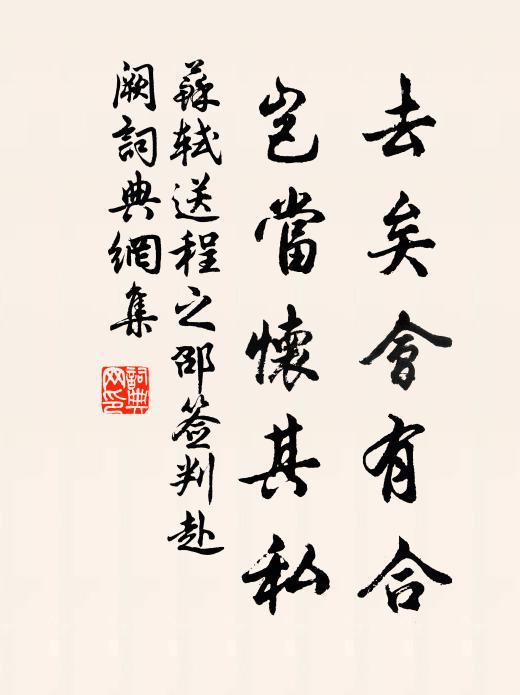 去矣會有合
豈當懷其私
蘇軾送程之邵簽判赴
闕詞典網集
詞典
网印